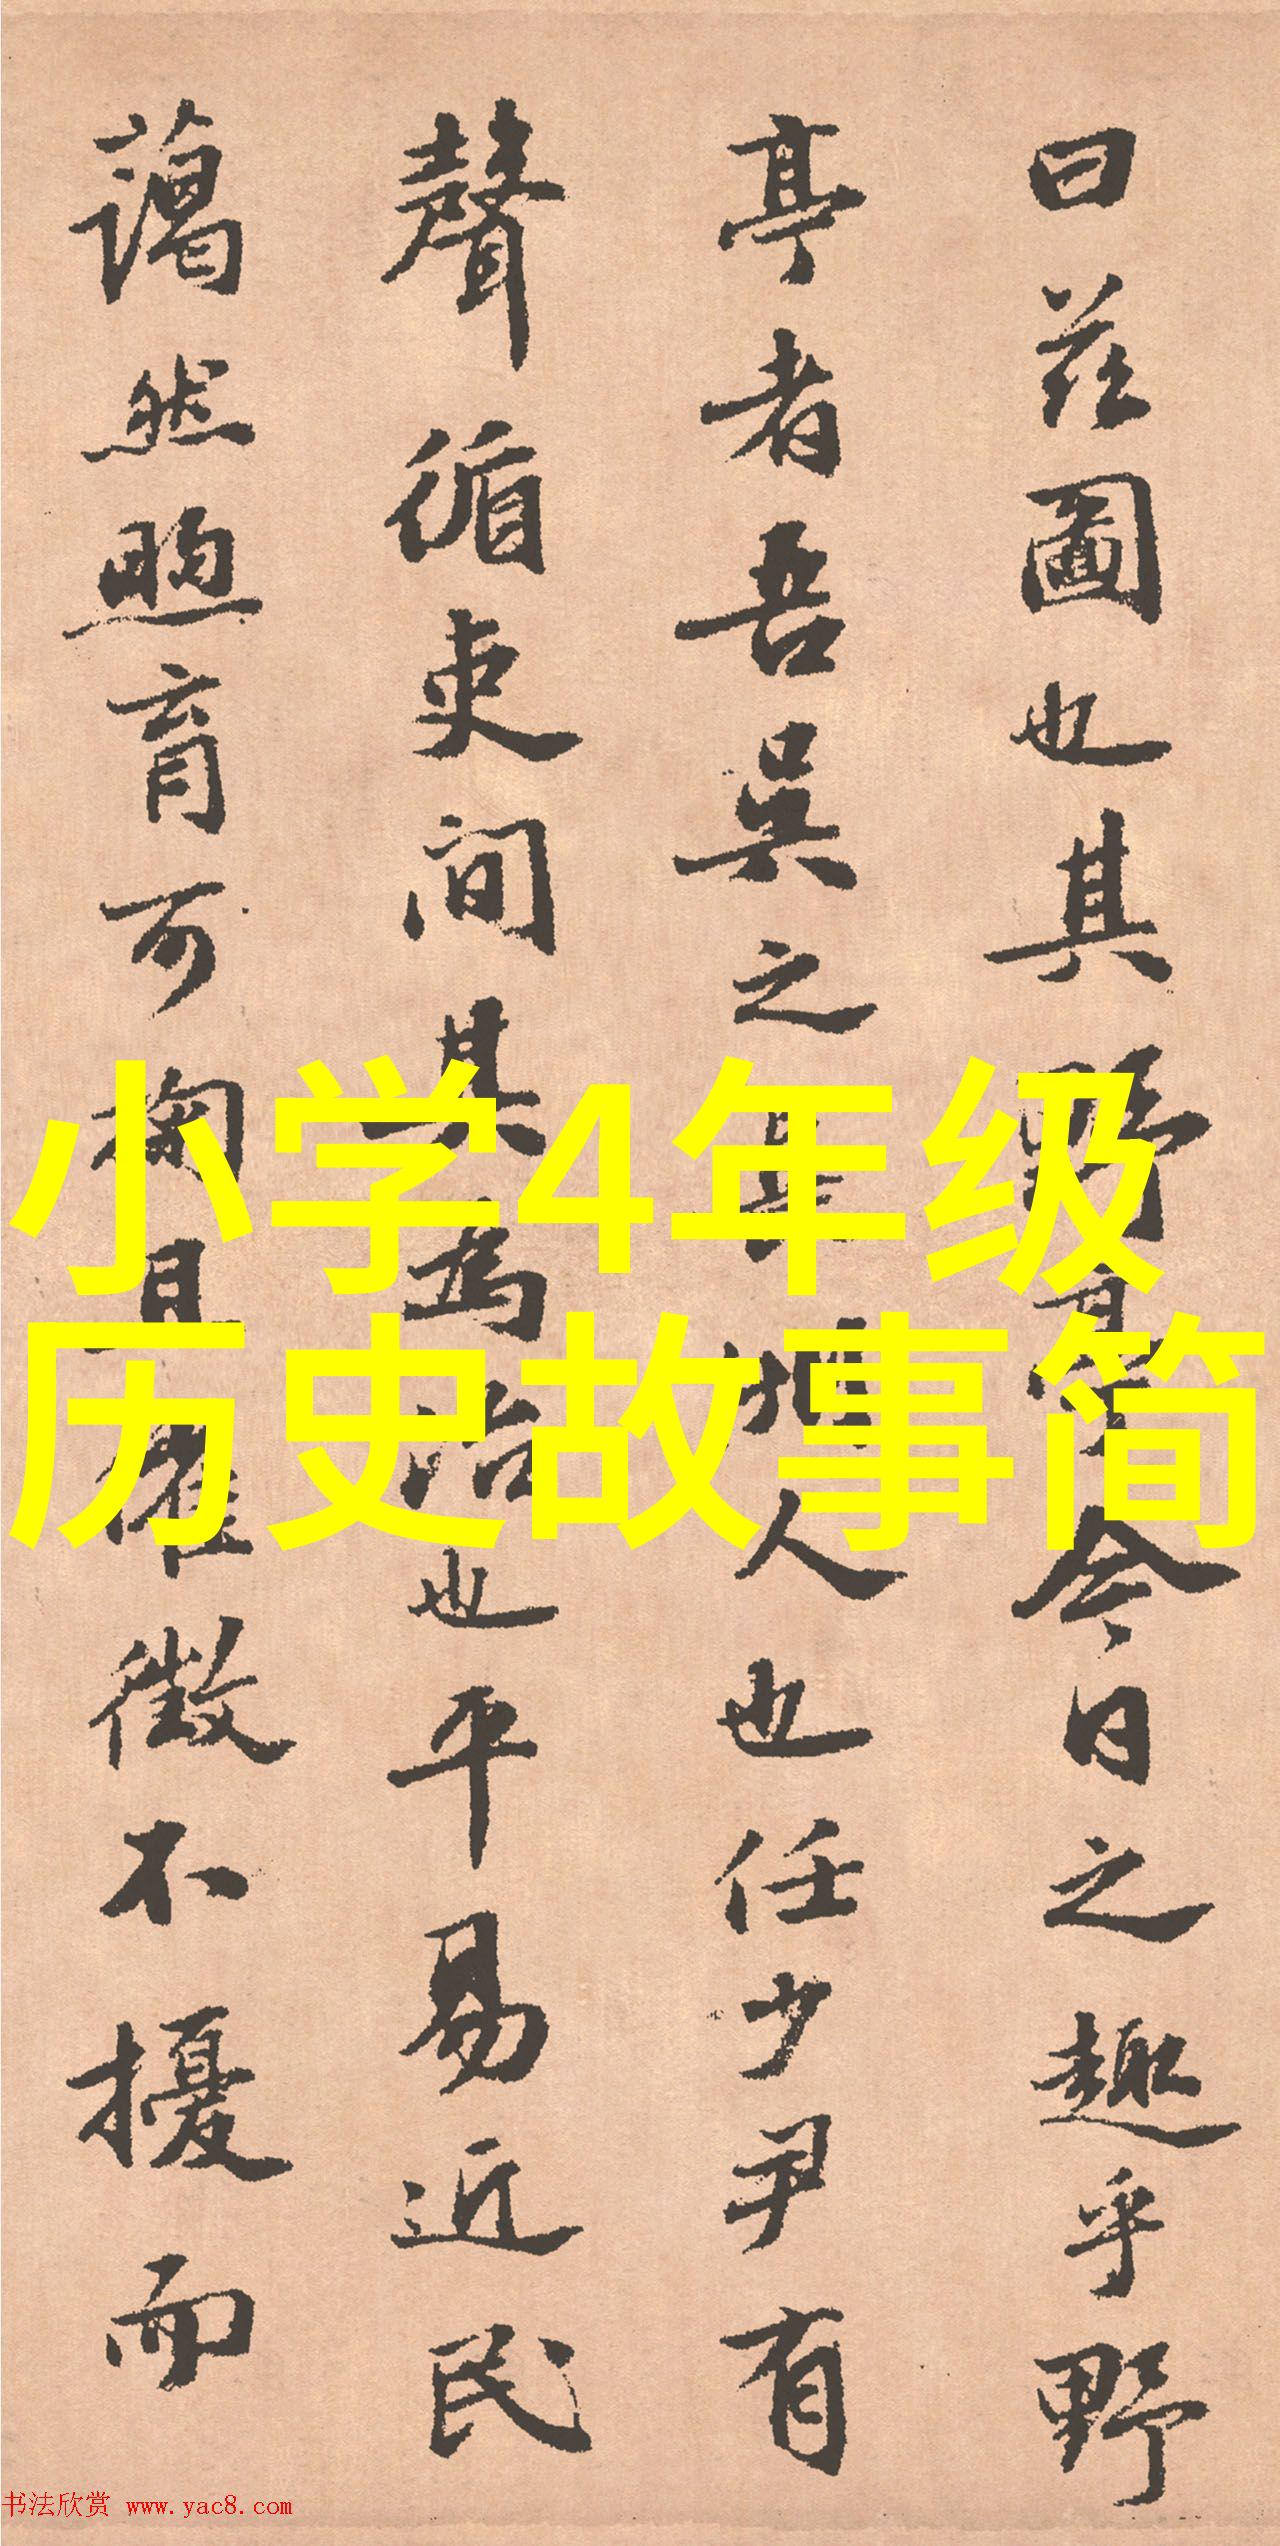 曰茲圖也其野亭今日之趣乎野
亭者吾吳之人也任少尹有
聲循吏间其為治也平易近民
藹然煦育可掬且催徵不擾而
小学4年级
历史故事简
书法欣赏 www.yac8.com